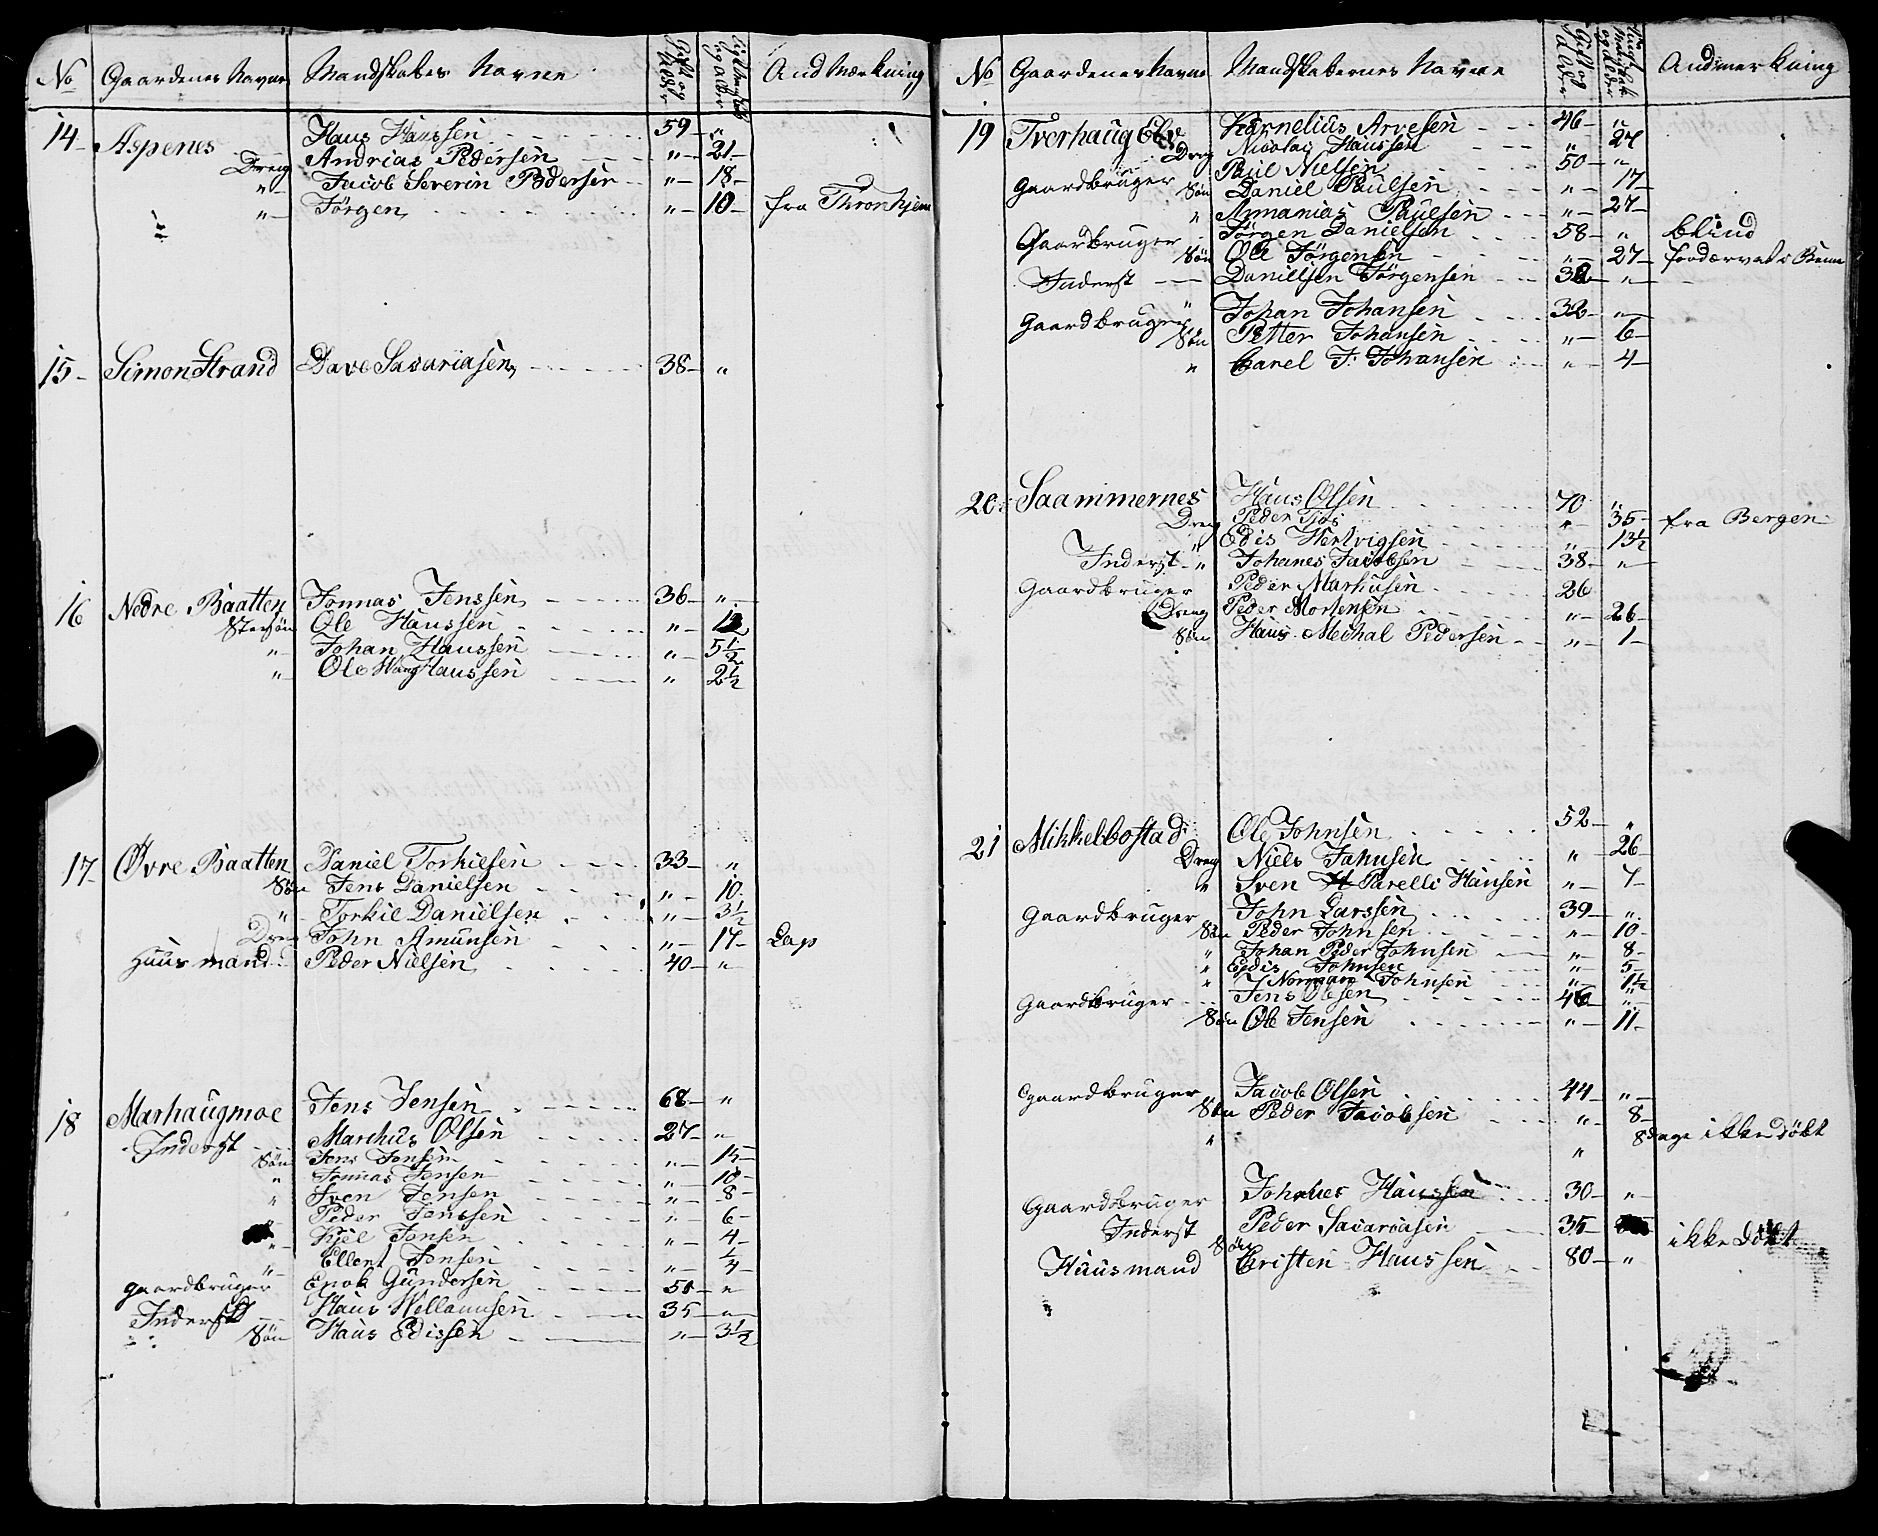 No Gaardenes Navne Mandskabes Navne Gift og Alder og Alder AndMærkning
14 Aspenes Hans Hanssen 59 "
Dreng Andrias Pedersen " 21
" Jacob Severin Pedersen " 18
" Jørgen " 10 fra Thronhjem
15 SimonStrand Dave Sacariasen 38 "
16 Nedre Baatten Jonnas Jenssen 36 "
Stevsøn Ole Hanssen " 12
" Johan Hanssen " 5½
" Ole Wang Hanssen " 2½
17 Øvre Baatten Daniel Torkielsen 33 "
Søn Jens Danielsen " 10
" Torkil Danielsen " 3½
Dreng John Amunsen " 17 Lap
Huusmand Peder Nielsen 40 "
18 Marhaugmoe Jens Jensen 68 "
Inderst Marchus Olsen 27 "
Søn Jens Jensen " 15
" Jonnas Jensen " 10
" Sven Jensen " 8
" Peder Jenssen " 6
" Kiel Jensen " 4
" Ellert Jensen " ¼
gaardbruger Enok Gundersen 50 "
Inderst Hans Willamsen 35 "
Søn Hans Edissen " 3½
No Gaardenes Navne Mandskabernes Navne Gift og Alder og Alder Andmerkning
19 Tverhaug Elv Kornelius Arvesen 46 "
Dreng Nicolai Hanssen " 27
Gaardbruger Paul Nielsen 50 "
Søn Daniel Paulsen " 17
" Annanias Paulsen " 27
Gaardbruger Jørgen Danielsen 58 " blind
Søn Ole Jørgensen " 27 fordærvede Been
Inderst Daniellsen Jørgensen 32 "
Gaardbruger Johan Johansen 32 "
Søn Petter Johansen " 6
" Carel J: Johansen " 4
20 Saammernes Hans Olsen 70 "
Dreng Peder " 35 fra Bergen
" Edis Hertvigsen " 13½
Inderst " Johanes Jacobsen 38 "
Gaardbruger Peder Markusen 26
Dreng Peder Mortensen " 26
Søn Hans Michal Pedersen " 1
21 Mikkelbostad Ole Johnsen 52 "
Dreng Niels Jahnsen " 26
" Sven Parelli Hansen " 7
Gaardbruger John Larssen 39 "
Søn Peder Johnsen " 10
" Johan Peder Johnsen " 8
" Edis Johnsen " 5
" Normann Johnsen " 1½
Gaardbruger Jens Olesen 46 "
Søn Ole Jensen " 11
Gaardbruger Jacob Olsen 44 "
Søn Peder Jacobsen " 8
" " 8 dage ikke døbt
Gaardbruger Johanes Hanssen 30 "
Inderst Peder Sacariasen 35
Søn ikke døbt
Huusmand Cristen Hanssen 80 "